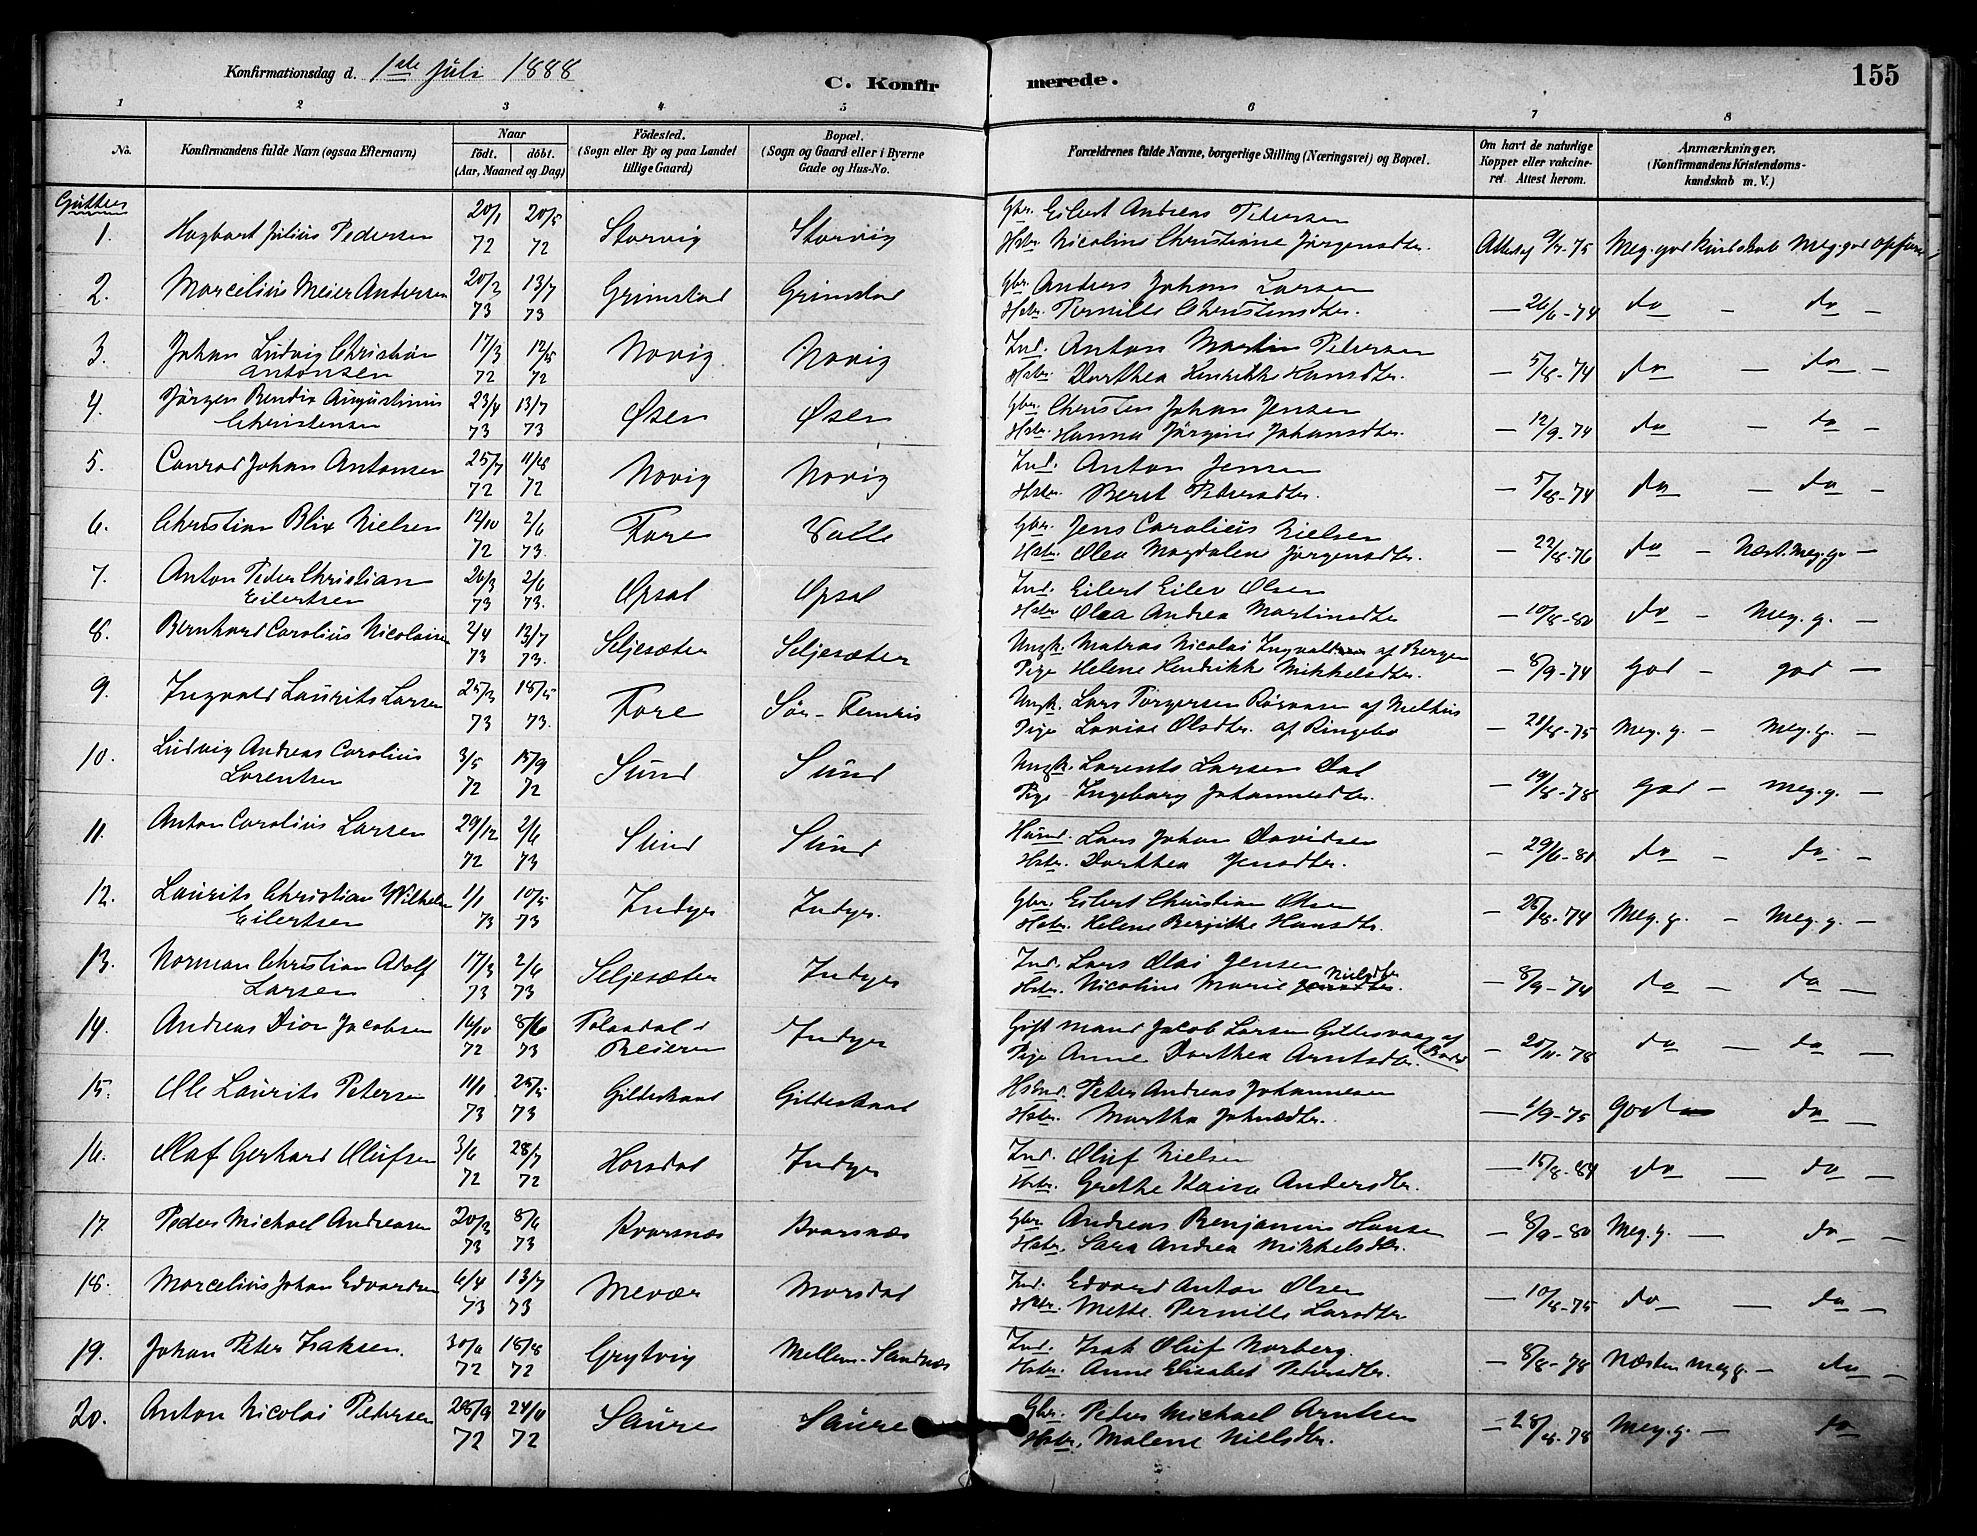 Konfirmationsdag d. 1ste Juli 1888
C. Konfirmerede.
155
1 2 3 4 5 6 7 8
No.
Konfirmandens fulde Navn (ogsaa Efternavn)
Naar
födt. döbt.
(Aar, Maaned og Dag)
Födested.
(Sogn eller By og paa Landet
tillige Gaard)
Bopæl.
(Sogn og Gaard eller i Byerne
Gade og Hus-No.
Forældrenes fulde Navne, borgerlige Stilling (Næringsvei) og Bopæl.
Om havt de naturlige
Kopper eller vakcine-
ret. Attest herom.
Anmærkninger.
(Konfirmandens Kristendoms-
kundskab m. V.)
Gutter
1. Hagbart Julius Pedersen 20/1 72 20/5 72 Storvig Storvig Gbr. Eilert Andreas Petersen
Hstr. Nicoline Christiane Jørgensdtr. Attest 9/7-75 Meg. god kundskab Meg. god
2. Marcelius Meier Andersen 20/2 73 13/7 73 Grimstad Grimstad Gbr. Anders Johan Larsen
Hstr. Pernille Christensdtr. — 26/6-74 do — do —
3. Johan Ludvig Christian
Antonsen 17/3 72 12/5 72 Novig Novig Ind. Anton Martin Petersen
Hstr. Dorthea Henrikke Hansdtr. — 5/8-74 do — do —
4. Jørgen Bendix Augustinus
Christensen 23/4 73 13/7 73 Øsen Øsen Gbr. Christen Johan Jensen
Hstr. Hanna Jørgine Johansdtr. — 12/9-74 do — do —
5. Conrad Johan Antonsen 25/7 72 11/8 72 Novig Novig Ind. Anton Jensen
Hstr. Berit Petersdtr. — 5/8-74 do — do —
6. Christian Blix Nielsen 12/10 72 2/6 73. Fore Valle Gbr. Jens Carolius Nielsen
Hstr. Olea Magdalene Jørgensdtr. — 22/8-76 do — Næst. Meg. g. —
7. Anton Peder Christian
Eilertsen 26/3 73 2/6 73. Øpsal Øpsal Ind. Eilert Eilev Olsen
Hstr. Olea Andrea Martinsdtr — 10/8-80 do — Meg. g. —
8. Bernhard Carolius Nicolaisen 2/4 73 13/7 73. Seljesæter Seljesæter Ungk. Matras Nicolai Ingvaldsen af Bergen
Pige Helene Hendrikke Mikkelsdtr. — 8/9-74 God — god —
9. Ingvald Laurits Larsen 25/3 73 18/5 73. Fore Sør-Femris Ungk. Lars Torgersen Rørvasen af Melhus
Pige Lovise Olsdtr. af Ringebo — 21/8-75 Meg. g. — Meg. g. —
10. Ludvig Andreas Carolius
Lorentsen 3/5 72 15/9 72 Sund Sund Ungk. Lorents Larsen Dal
Pige Ingeborg Johannesdtr. — 19/8-78 God — Meg. g. —
11. Anton Carolius Larsen 29/12 72 2/6 73 Sund Sund Husmd. Lars Johan Davidsen
Hstr. Dorthea Jensdtr. — 29/6-81 do — do —
12. Laurits Christian Wilhelm
Eilertsen 1/1 73 10/5 73 Indyr Indyr. Gbr. Eilert Christian Olsen
Hstr. Helene Bergitte Hansdtr. — 26/8-74 Meg. g. — Meg. g. —
13. Norman Christian Adolf
Larsen 17/3 73 2/6 73 Seljesæter Indyr Ind. Lars Olai Jensen
Hstr. Nicoline Marie Nielsdtr — 8/9-74 do — do —
14. Andreas Dior Jacobsen 14/10 72 8/6 73 Tolaadal i
Beieren Indyr Gift mand Jacob Larsen Gittesvaag af
Pige Anne Dorthea Arntsdtr. (Bodø — 20/11-78 do — do —
15. Ole Laurits Petersen 11/1 73 25/5 73 Gildeskaal Gildeskaal Hsmd. Peter Andreas Johannesen
Hstr. Martha Johnsdtr. — 1/9-75 God — do —
16. Olaf Gerhard Olufsen 3/6 72 28/7 72 Horsdal Indyr Ind. Oluf Nielsen
Hstr. Grethe Kaisa Andersdtr. — 15/8-84 do — do —
17. Peder Michael Andreasen 20/2 73 8/6 73 Kvarsnæs Kvarsnæs Gbr. Andreas Benjamin Hansen
Hstr. Sara Andrea Mikkelsdtr. — 8/9-80 Meg. g. — do —
18. Marcelius Johan Edvardsen 6/4 73 13/7 73 Mevær Morsdal Ind. Edvard Anton Olsen
Hstr. Mette Pernille Larsdtr — 10/8-75 do — do —
19. Johan Peter Isaksen. 30/6 72 18/8 72 Grytvig Mellem-Sandnæs Ind. Isak Oluf Norberg.
Hstr. Anne Elisabet Petersdtr. — 8/8-78 Næsten meg g. — do —
20. Anton Nicolai Petersen 28/9 72 24/11 72 Saure Saure Gbr. Peter Michael Arntsen
Hstr. Malene Nielsdtr. — 28/8-78 Meg. g. — do